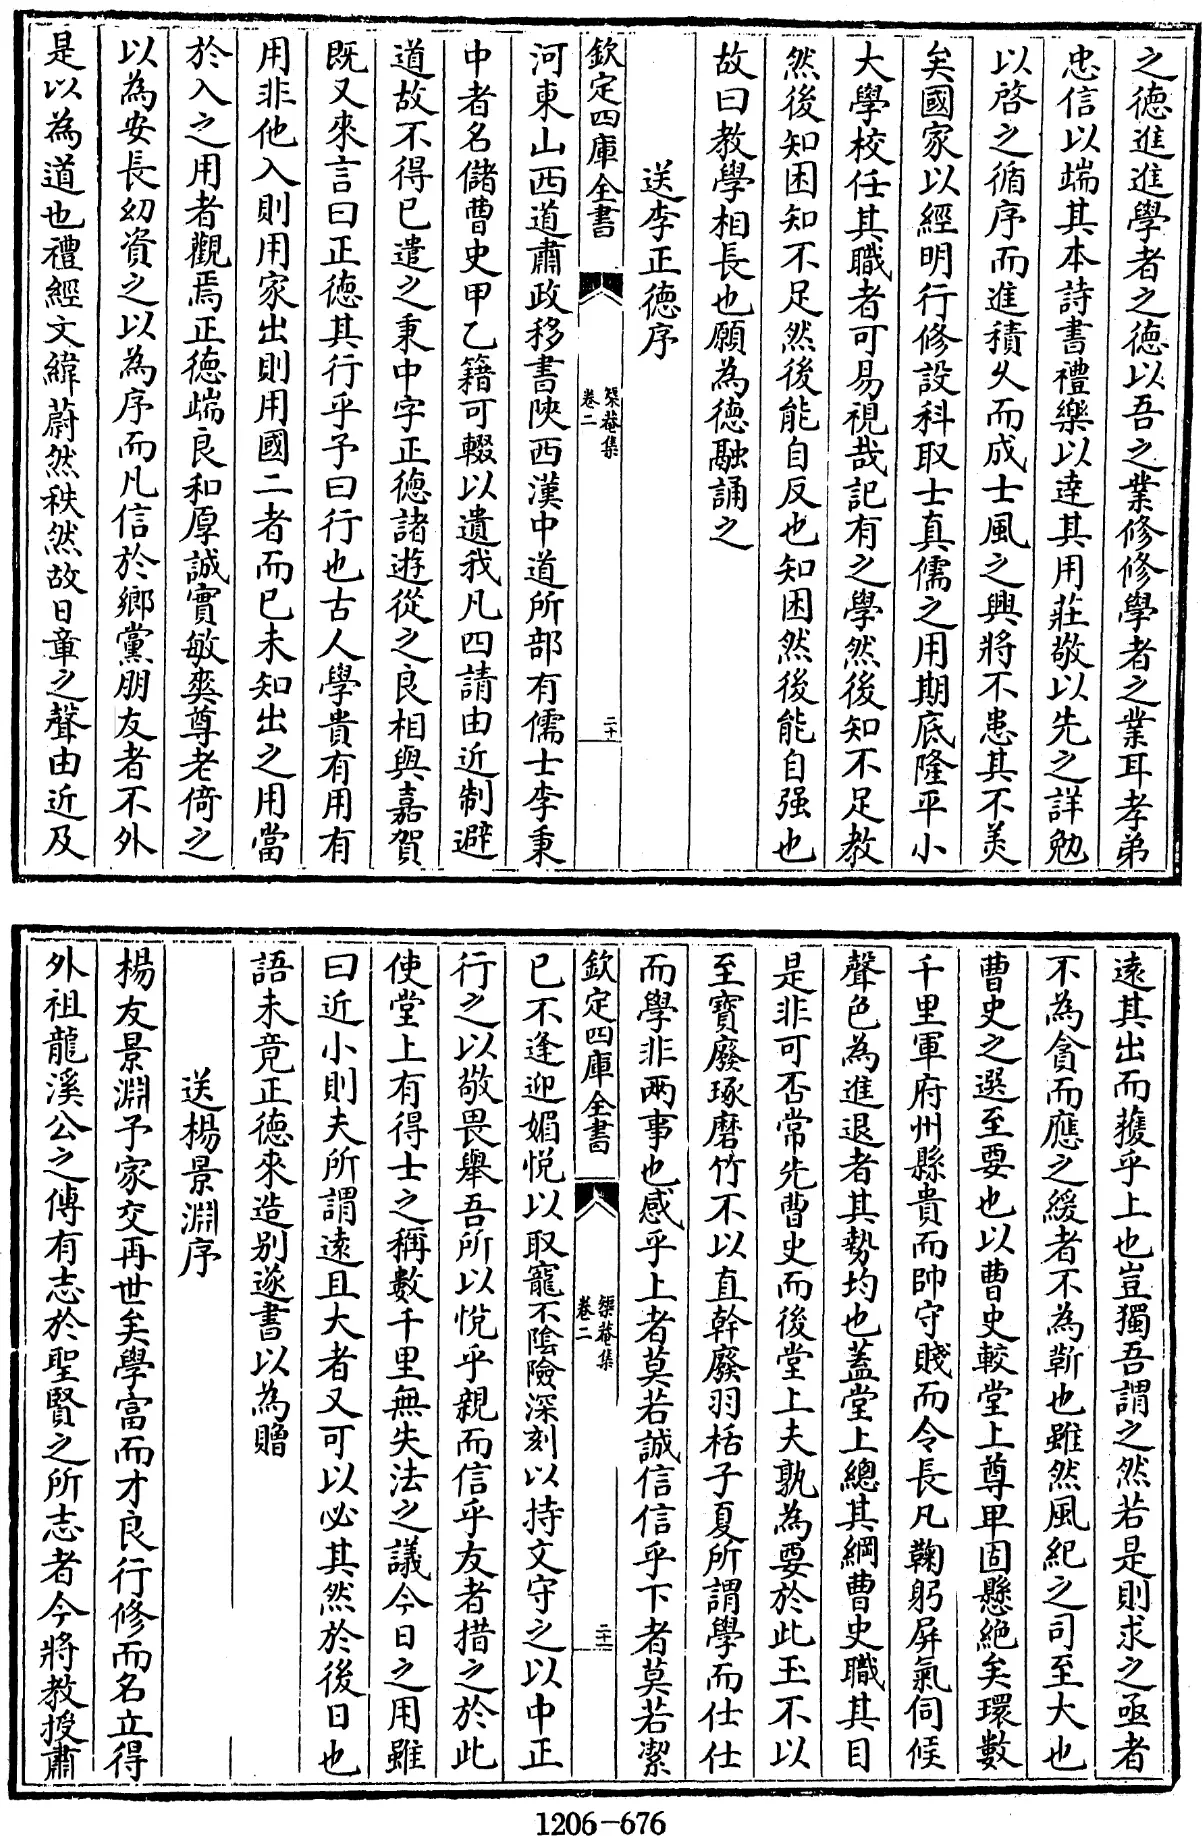 之徳進進學者之徳以吾之業修修學者之業耳孝弟
忠信以端其本詩書禮樂以達其用莊敬以先之詳勉
以啓之循序而進積乆而成士風之興將不患其不羙
矣國家以經明行修設科取士真儒之用期底隆平小
大學校任其職者可易視哉記有之學然後知不足教
然後知困知不足然後能自反也知困然後能自强也
故曰教學相長也願為徳融誦之
送李正徳序
欽定四庫全書
榘菴集
卷二
二十
河東山西道肅政移書陝西漢中道所部有儒士李秉
中者名儲曹史甲乙籍可輟以遺我凡四請由近制避
道故不得已遣之秉中字正徳諸遊從之良相與嘉賀
既又來言曰正徳其行乎予曰行也古人學貴有用有
用非他入則用家出則用國二者而已未知出之用當
於入之用者觀焉正徳端良和厚誠實敏爽尊老倚之
以為安長幼資之以為序而凡信於鄉黨朋友者不外
是以為道也禮經文緯蔚然秩然故日章之聲由近及
遠其出而獲乎上也豈獨吾謂之然若是則求之亟者
不為貪而應之緩者不為靳也雖然風紀之司至大也
曹史之選至要也以曹史較堂上尊卑固懸絶矣環數
千里軍府州縣貴而帥守賤而令長凡鞠躬屏氣伺候
聲色為進退者其勢均也蓋堂上總其綱曹史職其目
是非可否常先曹史而後堂上夫孰為要於此玉不以
至寳廢琢磨竹不以直幹廢羽栝子夏所謂學而仕仕
而學非兩事也感乎上者莫若誠信信乎下者莫若潔
欽定四庫全書
榘菴集
卷二
二十一
已不逢迎媚悦以取寵不陰險深刻以持文守之以中正
行之以敬畏舉吾所以悦乎親而信乎友者措之於此
使堂上有得士之稱數千里無失法之議今日之用雖
曰近小則夫所謂遠且大者又可以必其然於後日也
語未竟正徳來造别遂書以為贈
送楊景淵序
楊友景淵予家交再世矣學富而才良行修而名立得
外祖龍溪公之傳有志於聖賢之所志者今將教授肅
1206-676